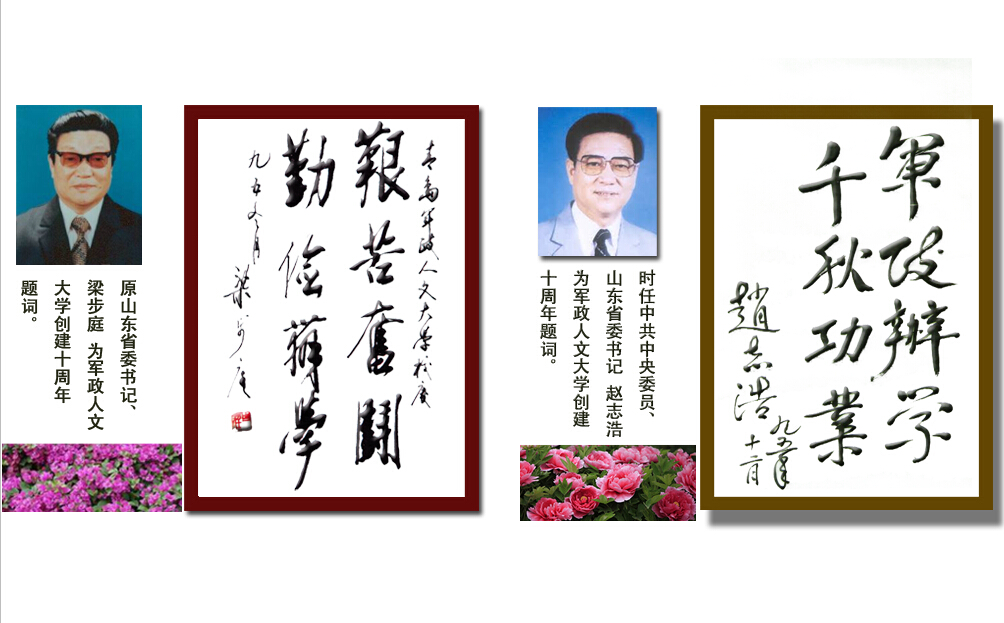 原山东省委书记、
梁步庭 为军政人文
大学创建十周年
题词。
青岛军政人文大学校庆
艱苦奮鬪
勤俭辦學
梁步庭
时任中共中央委员、
山东省委书记 赵志浩
为军政人文大学创建
十周年题词。
軍政辦学
千秋功業
趙志浩
九五年
十二月